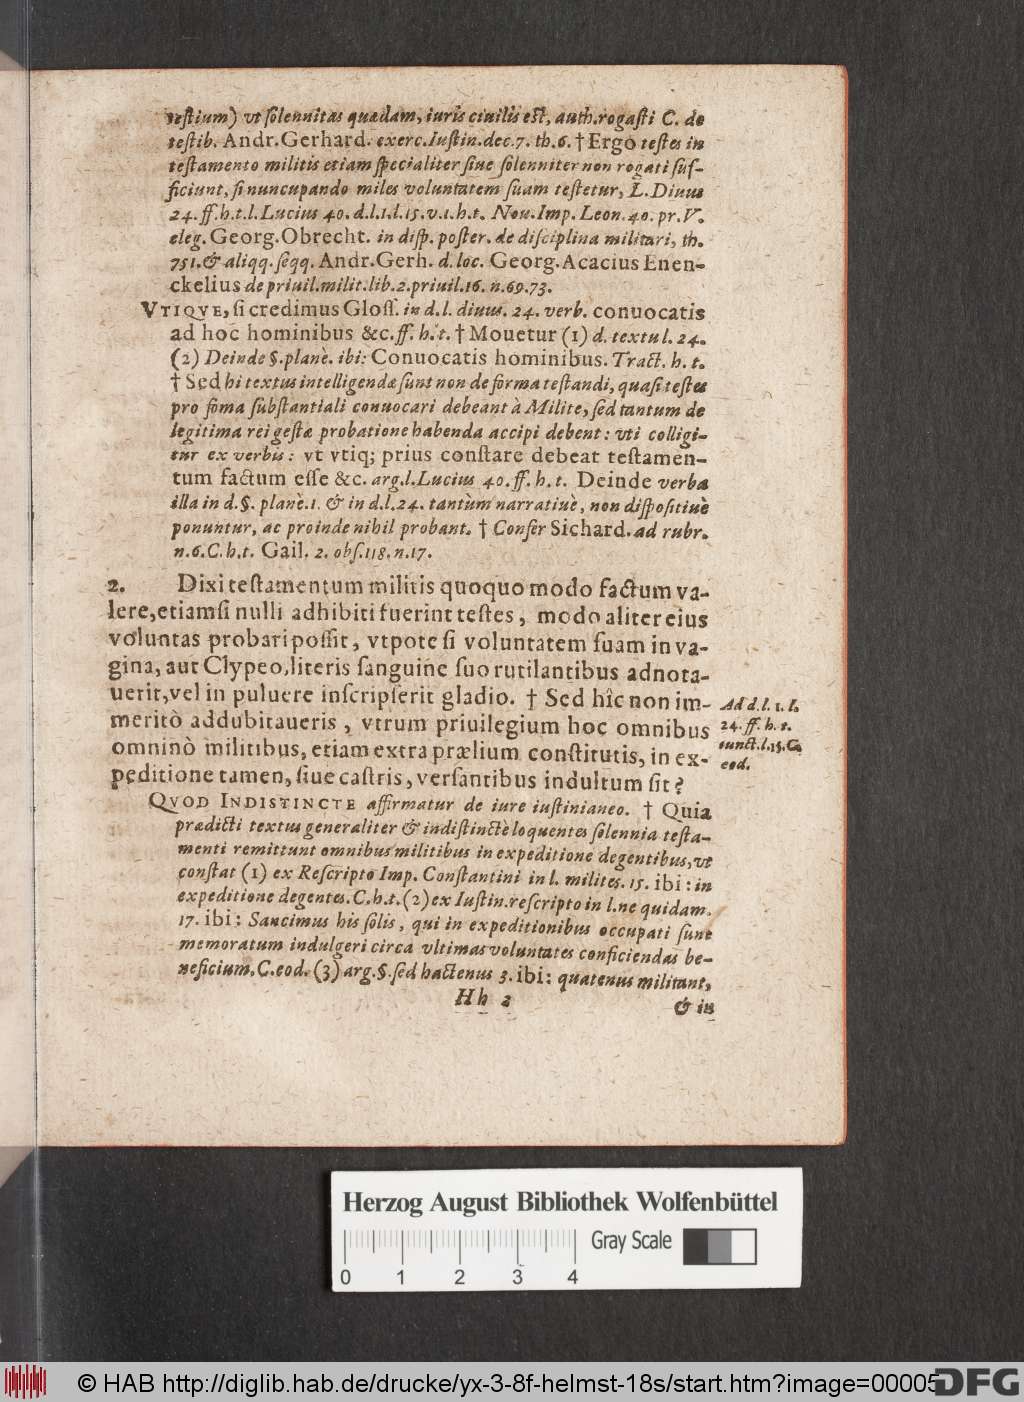 testium) vt solennitas quædam, iuris ciuilis est, auth. rogasti C. de
testib. Andr. Gerhard. exerc. Iustin. dec. 7. th. 6. † Ergo testes in
testamento militis etiam specialiter siue solenniter non rogati suf-
ficiunt, si nuncupando miles voluntatem suam testetur, L. Diuus
24. ff. h. t. l. Lucius 40. d. l. 1. l. 15. v. 1. h. t. Nou. Imp. Leon. 40. pr. V.
eleg. Georg. Obrecht. in disp. poster. de disciplina militari, th.
751. & aliqq. seqq. Andr. Gerh. d. loc. Georg. Acacius Enen-
ckelius de priuil. milit. lib. 2. priuil. 16. n. 69. 73.
VTIQVE, si credimus Gloss. in d. l. diuus. 24. verb. conuocatis
ad hoc hominibus &c. ff. h. t. † Mouetur (1) d. textu l. 24.
(2) Deinde §. planè. ibi: Conuocatis hominibus. Tract. h. t.
† Sed hi textus intelligendæ sunt non de forma testandi, quasi testes
pro foma substantiali conuocari debeant à Milite, sed tantum de
legitima rei gestæ probatione habenda accipi debent: vti colligi-
tur ex verbis: vt vtiq; prius constare debeat testamen-
tum factum esse &c. arg. l. Lucius 40. ff. h. t. Deinde verba
illa in d. §. planè. 1. & in d. l. 24. tantùm narratiuè, non dispositiuè
ponuntur, ac proinde nihil probant. † Confer Sichard. ad rubr.
n. 6. C. h. t. Gail. 2. obs. 118. n. 17.
2. Dixi testamentum militis quoquo modo factum va-
lere, etiamsi nulli adhibiti fuerint testes, modo aliter eius
voluntas probari possit, vtpote si voluntatem suam in va-
gina, aut Clypeo, literis sanguine suo rutilantibus adnota-
uerit, vel in puluere inscripserit gladio. † Sed hîc non im-
meritò addubitaueris, vtrum priuilegium hoc omnibus
omninò militibus, etiam extra prælium constitutis, in ex-
peditione tamen, siue castris, versantibus indultum sit?
Ad d. l. 1. l.
24. ff. h. t.
iunct. l. 15. C.
eod.
QVOD INDISTINCTE affirmatur de iure iustinianeo. † Quia
prædicti textus generaliter & indistinctè loquentes solennia testa-
menti remittunt omnibus militibus in expeditione degentibus, vt
constat (1) ex Rescripto Imp. Constantini in l. milites. 15. ibi: in
expeditione degentes. C. h. t. (2) ex Iustin. rescripto in l. ne quidam.
17. ibi: Sancimus his solis, qui in expeditionibus occupati sunt
memoratum indulgeri circa vltimas voluntates conficiendas be-
neficium, C. eod. (3) arg. §. sed hactenus 3. ibi: quatenus militant,
Hh 2
& in
Herzog August Bibliothek Wolfenbüttel
Gray Scale
0 1 2 3 4
© HAB http://diglib.hab.de/drucke/yx-3-8f-helmst-18s/start.htm?image=00005
DFG